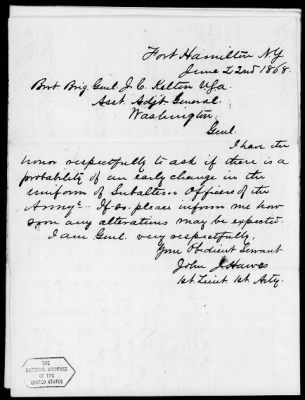 Fort Hamilton NY
June 22nd 1868.
Bvt Brig Genl J. C. Kelton USA.
Asst. Adjt General.
Washington
Genl.
I have the
honor respectfully to ask if there is a
probability of an early change in the
uniform of Subaltern Officers of the
Army. If so, please inform me how
soon any alterations may be expected.
I am Genl. very respectfully,
Your Obedient Servant
John J. Hawes
1st Lieut 1st Arty.
THE
NATIONAL ARCHIVES
OF THE
UNITED STATES